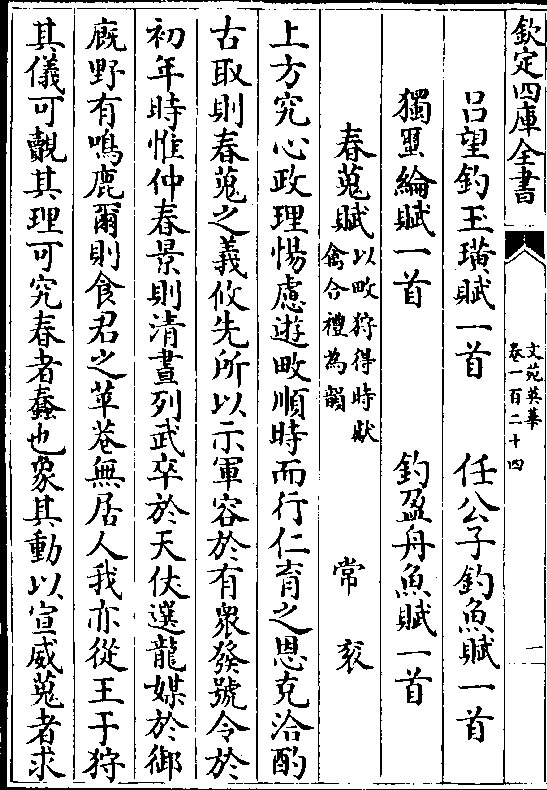 欽定四庫全書
文苑英華
卷一百二十四
一
呂望釣玉璜賦一首　任公子釣魚賦一首
獨繭綸賦一首　釣盈舟魚賦一首
春蒐賦以畋狩得時獻禽合禮為韻　常衮
上方究心政理惕慮遊畋順時而行仁育之恩克洽酌
古取則春蒐之義攸先所以示軍容於有衆發號令於
初年時惟仲春景則清晝列武卒於天仗選龍媒於御
廐野有鳴鹿爾則食君之苹菴無居人我亦從王于狩
其儀可覿其理可究春者蠢也象其動以宣威蒐者求